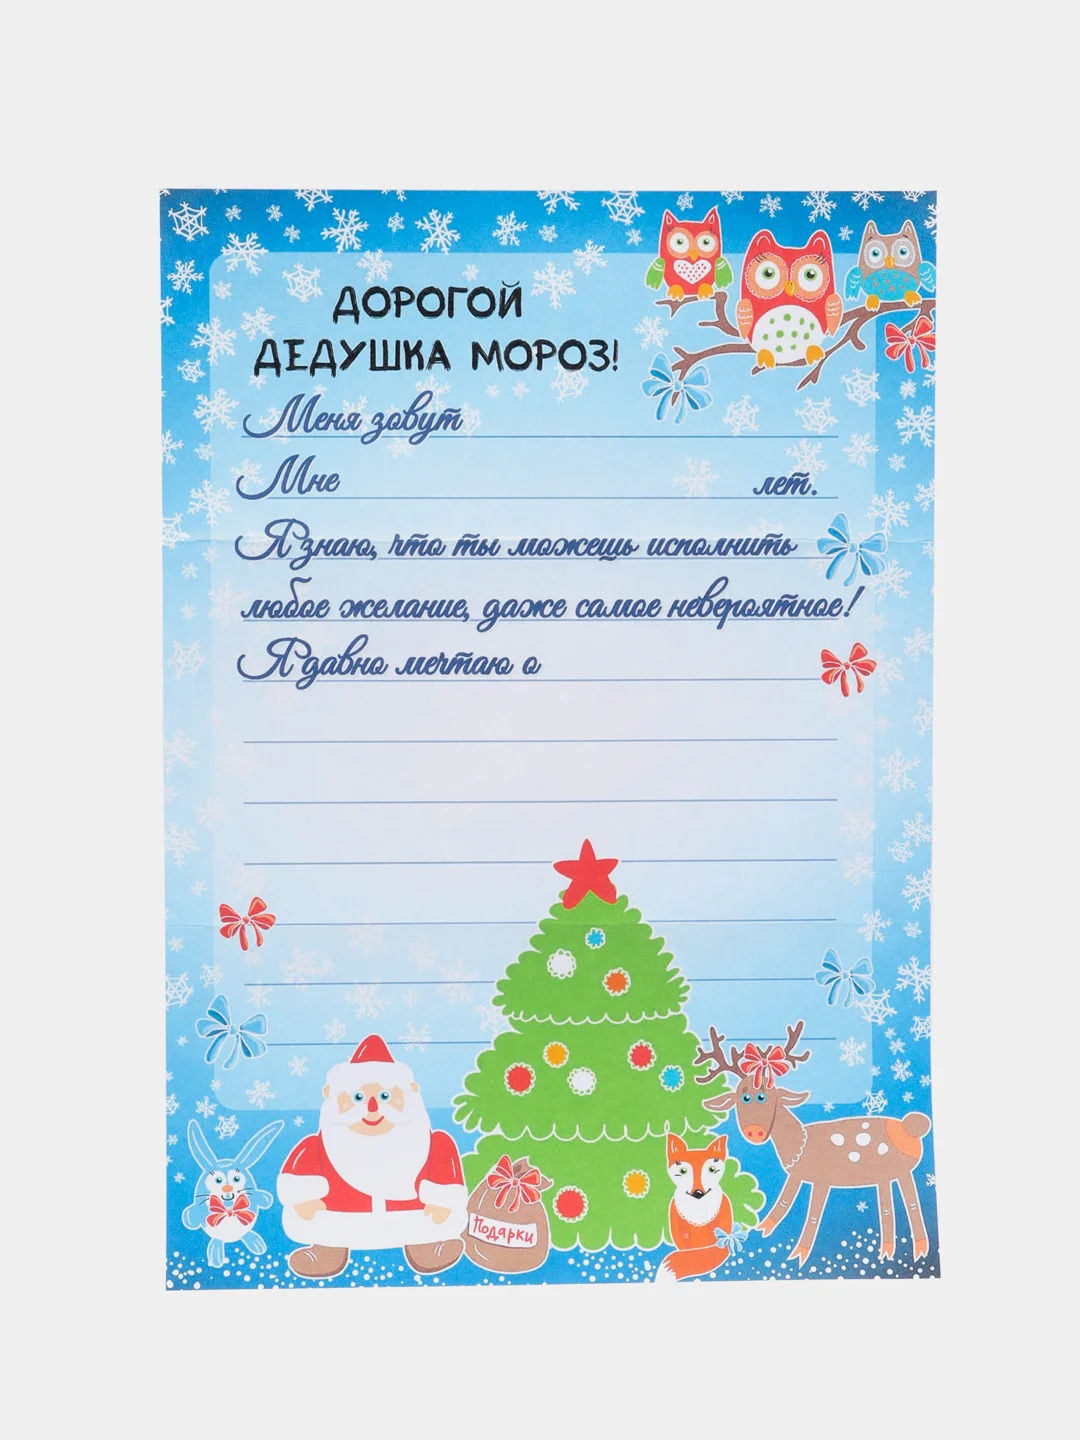 ДОРОГОЙ
ДЕДУШКА МОРОЗ!
Меня зовут
Мне лет.
Я знаю, что ты можешь исполнить
любое желание, даже самое невероятное!
Я давно мечтаю о
Подарки